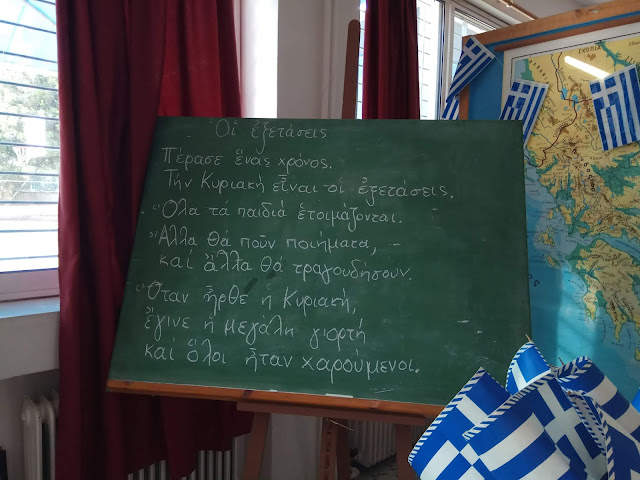 Οἱ ἐξετάσεις
Πέρασε ἕνας χρόνος.
Τήν Κυριακή εἶναι οἱ ἐξετάσεις.
Ὅλα τά παιδιά ἑτοιμάζονται.
Ἄλλα θά ποῦν ποιήματα,
καί ἄλλα θά τραγουδήσουν.
Ὅταν ἦρθε ἡ Κυριακή,
ἔγινε ἡ μεγάλη γιορτή
καί ὅλοι ἦταν χαρούμενοι.